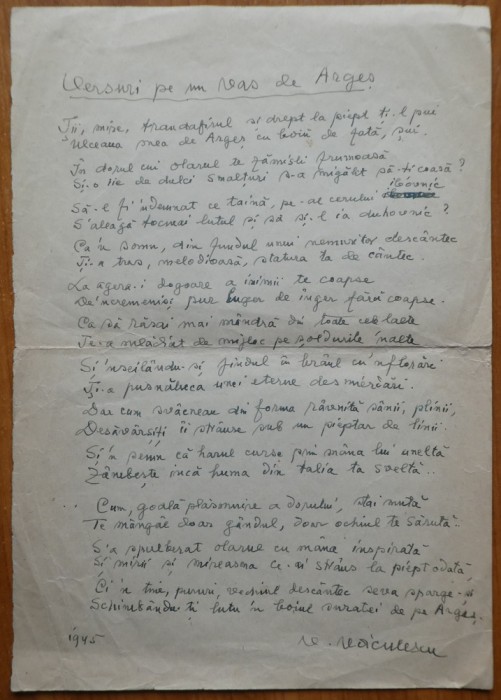 Versuri pe un vas de Argeș
Ții, mire, trandafirul și drept la piept ți-l pui
Ulceaua mea de Argeș cu boiu de fată, șui.
În dorul cui olarul te zămisli frumoasă
Și-o iie de dulci smalțuri s-a migălit să-ți coasă?
Să-l fi 'ndemnat ce taină, pe-al cerului ibovnic
S'aleagă tocmai lutul și să și-l ia duhovnic?
Ca'n somn, din fundul unui nemuritor descântec
Ți-a tras, melodioasă, statura ta de cântec.
La agera-i dogoare a inimii te coapse
De'ncremeniși pur luger de înger fără coapse.
Ca să răsai mai mândră din toate celelalte
Te-a mlădiat de mijloc pe șoldurile 'nalte
Și 'nseilându-și jindul în brâul cu 'nflorări
Ți-a pus năluca unei eterne desmierdări.
Dar cum svâcneau din forma râvnită sânii, plinii,
Desăvârșiți îi strânse sub un pieptar de linii.
Și'n semn că harul curse prin mâna lui unealtă
Zâmbește încă huma din talia ta sveltă..
Cum, goală plăsmuire a dorului, stai mută
Te mângâi doar gândul, doar ochiul te sărută..
S'a spulberat olarul cu mâna inspirată
Și mirii și mireasma ce-ai strâns la piept odată,
Ci'n tine, pururi, vechiul descântec seva sparge-și
Schimbându-ți lutu'n boiul suratei de pe Argeș.
1945
V. Voiculescu